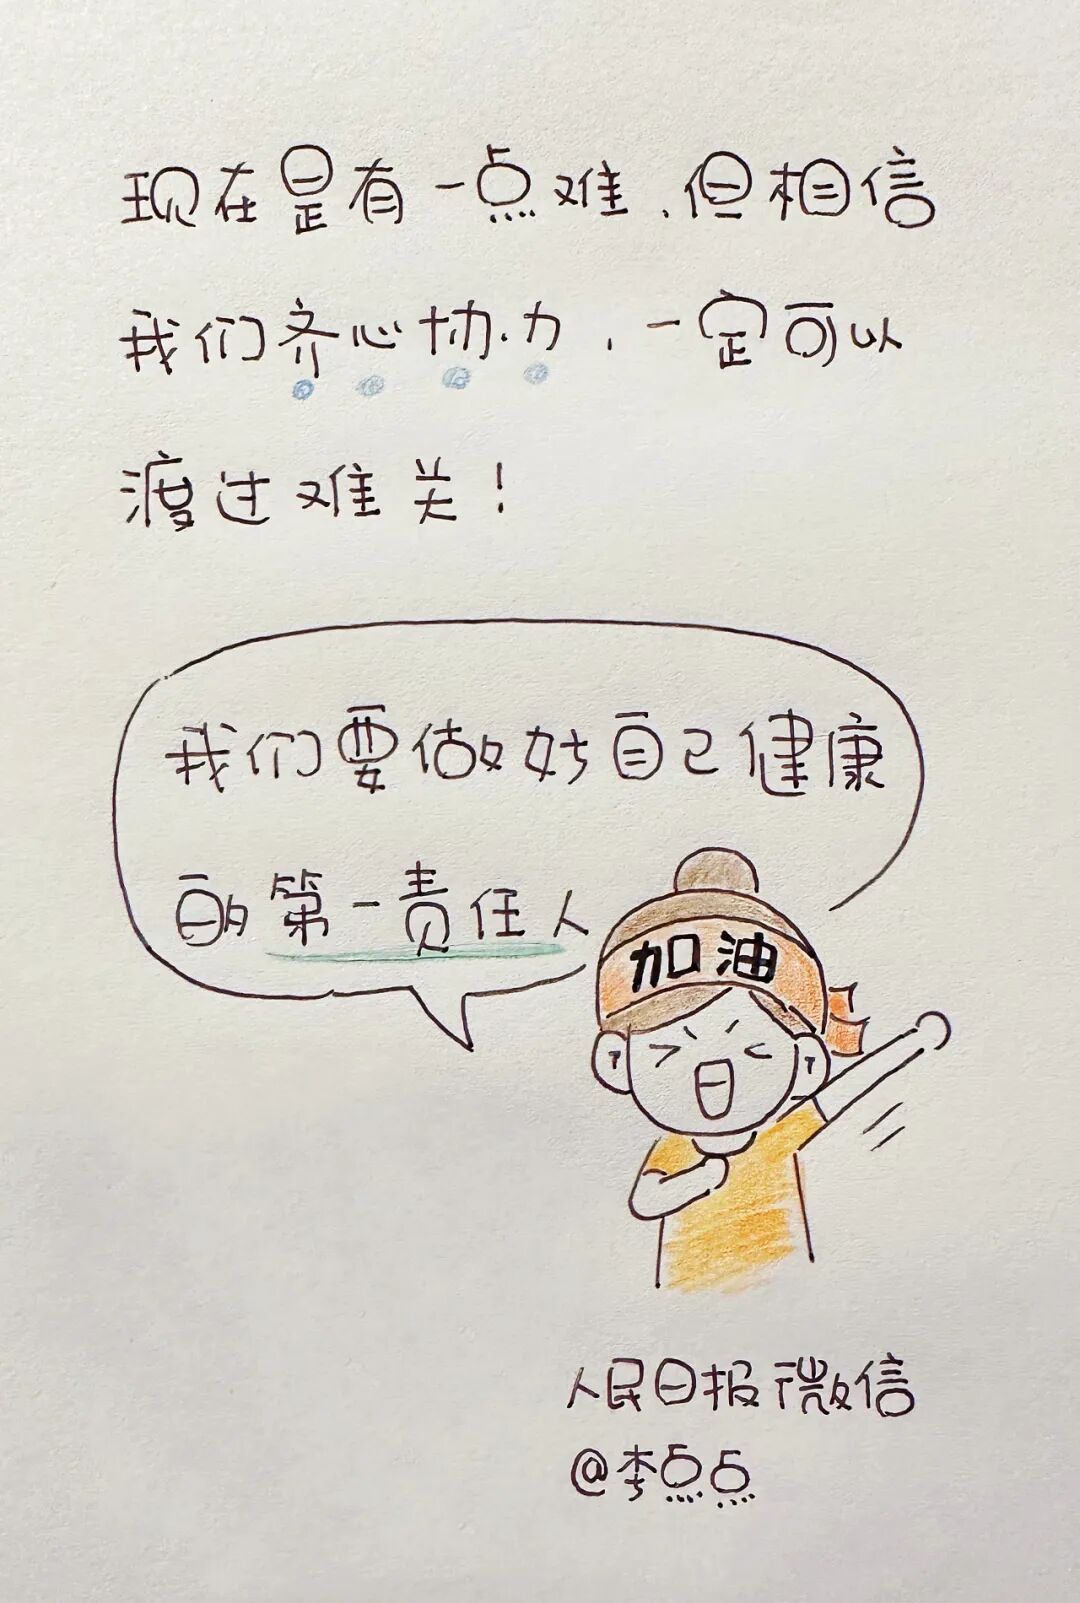 现在是有一点难，但相信
我们齐心协力，一定可以
渡过难关！
我们要做好自己健康
的第一责任人
加油
人民日报微信
@李点点